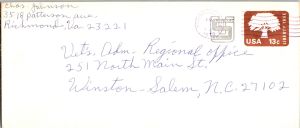 Chas Johnson
3518 Patterson Ave.
Richmond, Va 23221
USA 13c
Vet's Adm. Regional office
251 North Main St.
Winston-Salem, N.C. 27102